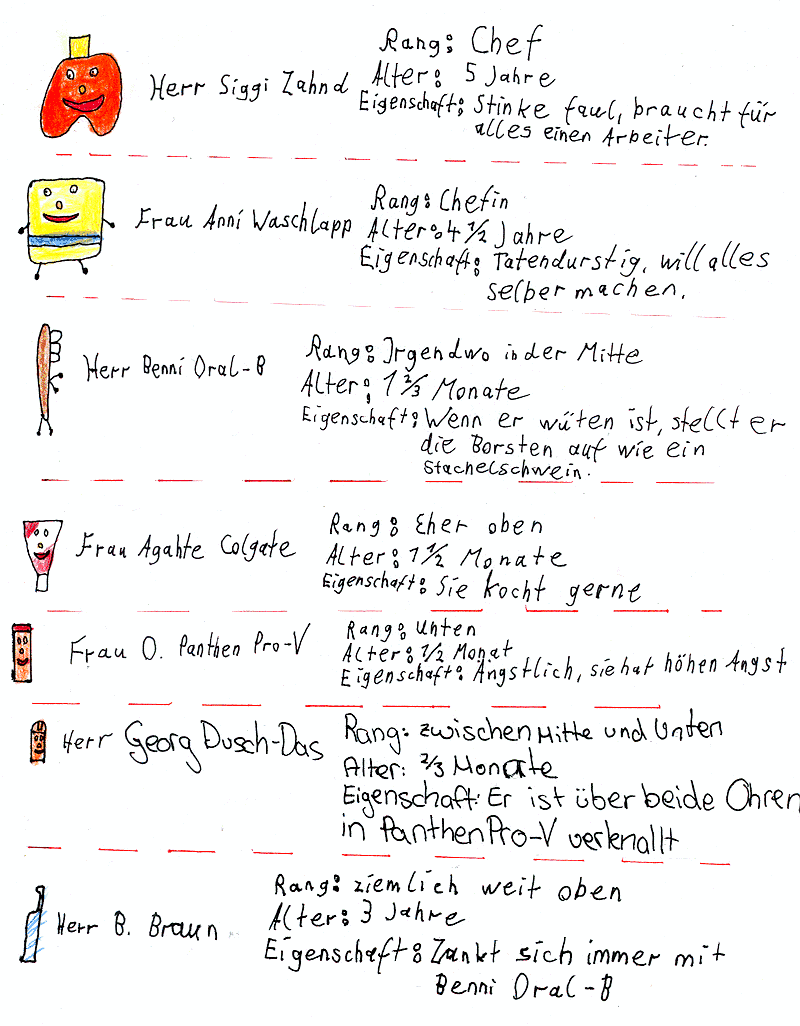 Rang: Chef
Herr Siggi Zahnd
Alter: 5 Jahre
Eigenschaft: Stinke faul, braucht für
alles einen Arbeiter.
Frau Anni Waschlapp
Rang: Chefin
Alter: 4 1/2 Jahre
Eigenschaft: Tatendurstig, will alles
selber machen.
Herr Benni Oral-B
Rang: Irgendwo in der Mitte
Alter: 1 2/3 Monate
Eigenschaft: Wenn er wüten ist, stellt er
die Borsten auf wie ein
Stachelschwein.
Frau Agahte Colgate
Rang: Eher oben
Alter: 1 1/2 Monate
Eigenschaft: Sie kocht gerne
Frau O. Panthen Pro-V
Rang: Unten
Alter: 1/2 Monat
Eigenschaft: Ängstlich, sie hat höhen Angst
Herr Georg Dusch-Das
Rang: zwischen Mitte und Unten
Alter: 2/3 Monate
Eigenschaft: Er ist über beide Ohren
in Panthen Pro-V verknallt
Herr B. Braun
Rang: ziemlich weit oben
Alter: 3 Jahre
Eigenschaft: Zankt sich immer mit
Benni Oral-B